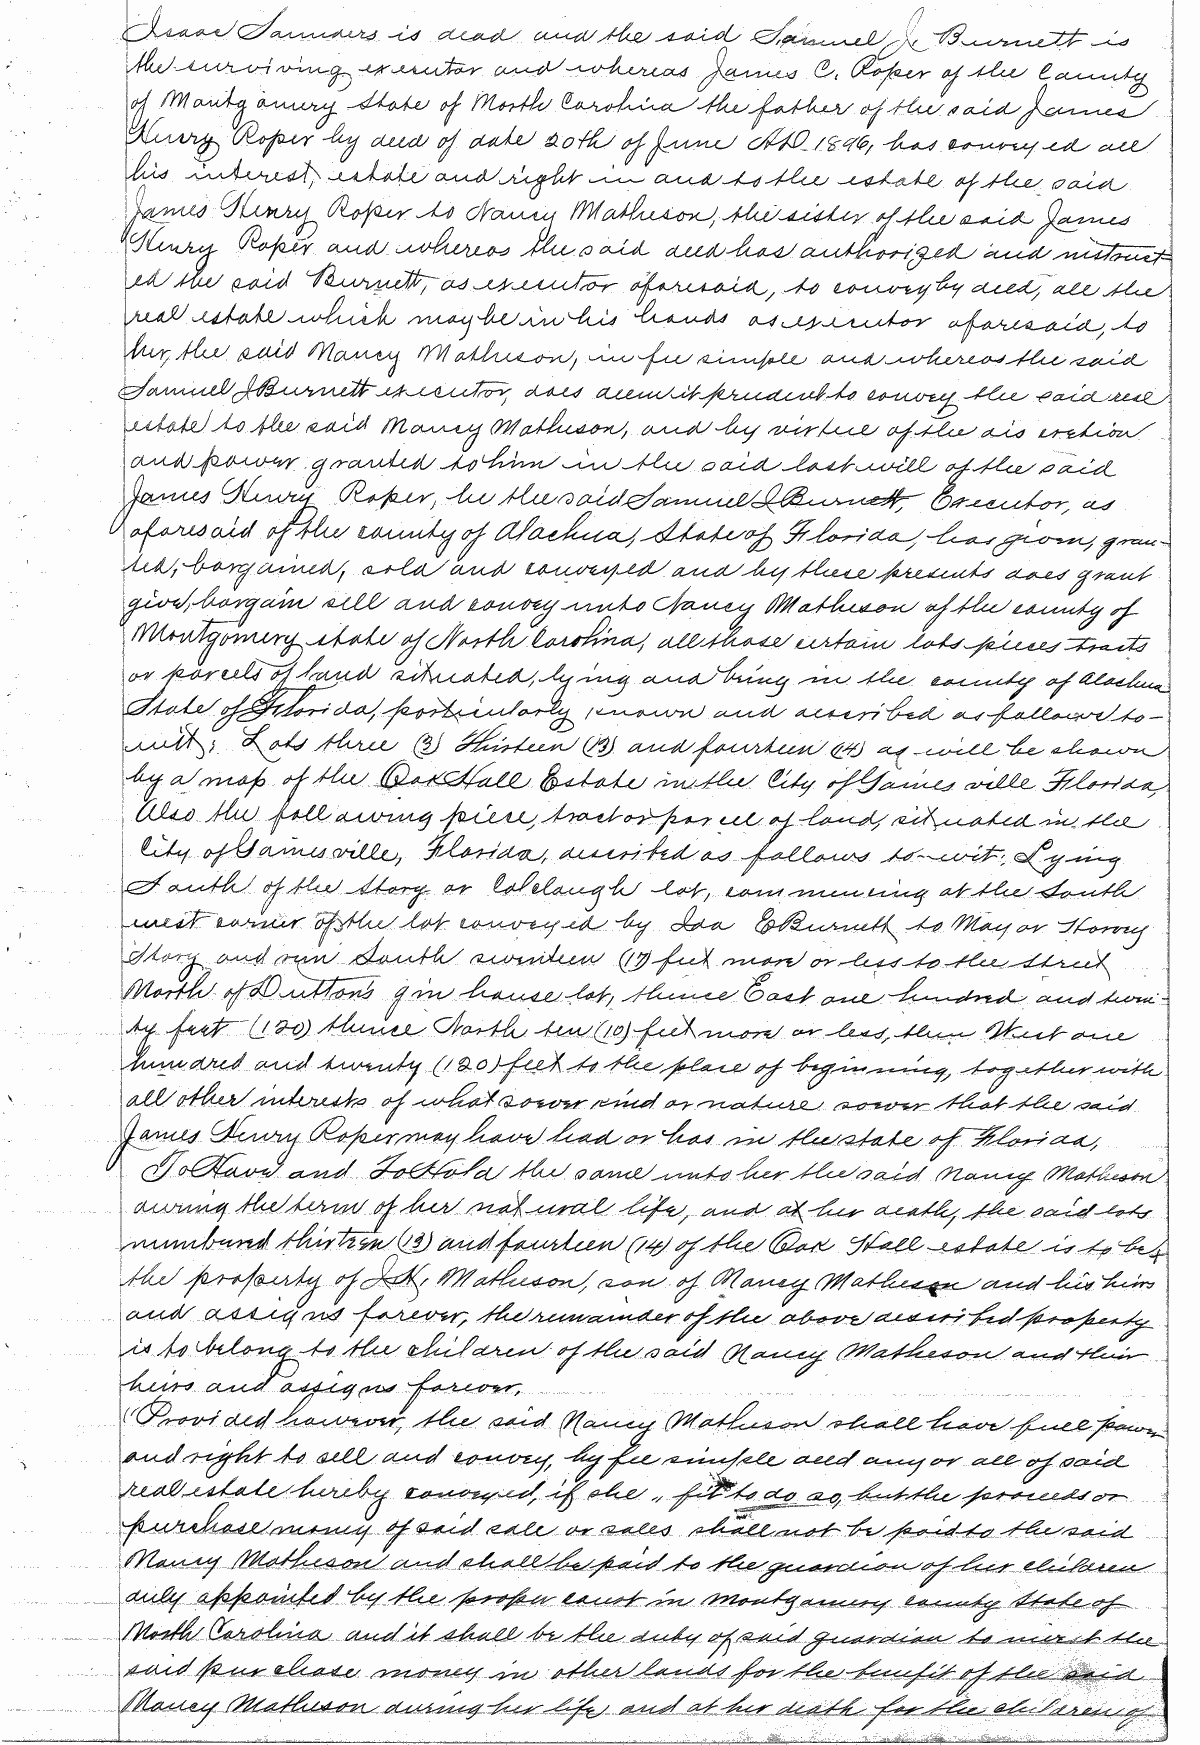 Isaac Saunders is dead and the said Samuel J. Burnett is
the surviving executor and whereas James C. Roper of the County
of Montgomery State of North Carolina the father of the said James
Henry Roper by deed of date 20th of June A.D. 1896, has conveyed all
his interest, estate and right in and to the estate of the said
James Henry Roper to Nancy Matheson, the sister of the said James
Henry Roper and whereas the said deed has authorized and instruct-
ed the said Burnett, as executor aforesaid, to convey by deed, all the
real estate which may be in his hands as executor aforesaid, to
her, the said Nancy Matheson, in fee simple and whereas the said
Samuel J Burnett executor, does deem it prudent to convey the said real
estate to the said Nancy Matheson, and by virtue of the discretion
and power granted to him in the said last will of the said
James Henry Roper, he the said Samuel J Burnett, Executor, as
aforesaid of the county of Alachua, State of Florida, has given, gran-
ted, bargained, sold and conveyed and by these presents does grant
give, bargain sell and convey unto Nancy Matheson of the county of
Montgomery state of North Carolina, all those certain lots pieces tracts
or parcels of land situated, lying and being in the county of Alachua
State of Florida, particularly known and described as follows to-
wit; Lots three (3) Thirteen (13) and fourteen (14) as will be shown
by a map of the Oak Hall Estate in the City of Gainesville Florida,
Also the following piece, tract or parcel of land, situated in the
City of Gainesville, Florida, described as follows to-wit; Lying
South of the Story or Colclough lot, commencing at the South
west corner of the lot conveyed by Ida E Burnett to Mayor Harvey
Story and run South seventeen (17) feet more or less to the street
North of Dutton's gin house lot, thence East one hundred and twen-
ty feet (120) thence North ten (10) feet more or less, then West one
hundred and twenty (120) feet to the place of beginning, together with
all other interests of what sower kind or nature sower that the said
James Henry Roper may have had or has in the state of Florida,
To Have and To Hold the same unto her the said Nancy Matheson
during the term of her natural life, and at her death, the said lots
numbered thirteen (13) and fourteen (14) of the Oak Hall estate is to be
the property of J.H. Matheson, son of Nancy Matheson and his heirs
and assigns forever, the remainder of the above described property
is to belong to the children of the said Nancy Matheson and their
heirs and assigns forever.
Provided however, the said Nancy Matheson shall have full power
and right to sell and convey, by fee simple deed any or all of said
real estate hereby conveyed, if she fit to do so, but the proceeds or
purchase money of said sale or sales shall not be paid to the said
Nancy Matheson and shall be paid to the guardian of her children
duly appointed by the proper court in Montgomery county State of
North Carolina and it shall be the duty of said guardian to invest the
said purchase money in other lands for the benefit of the said
Nancy Matheson during her life and at her death for the children of